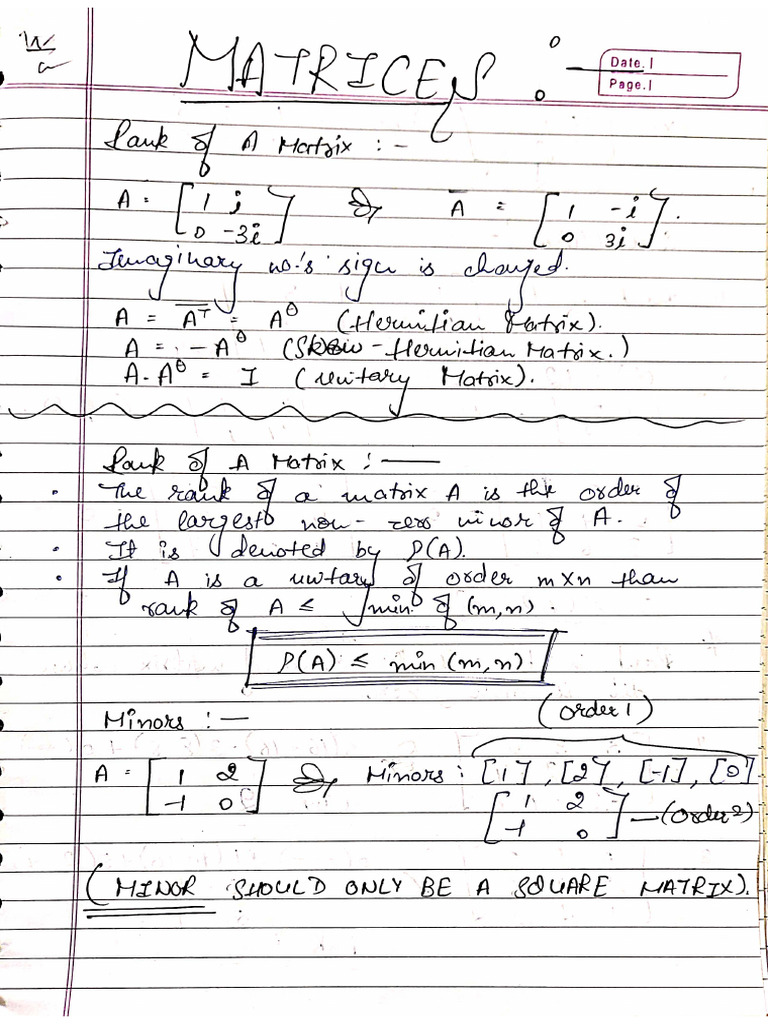 MATRICES :-
Date.
Page.
Rank of A Matrix :-
A = [1 i; 0 -3i] ⇒ A̅ = [1 -i; 0 3i].
Imaginary no.'s sign is changed.
A = A̅ᵀ = A^θ (Hermitian Matrix).
A = -A^θ (Skew-Hermitian Matrix.)
A.A^θ = I (unitary Matrix).
Rank of A Matrix :—
• The rank of a matrix A is the order of
the largest non-zero minor of A.
• It is denoted by ρ(A).
• If A is a unitary of order m×n than
rank of A ≤ min. of (m,n).
ρ(A) ≤ min (m,n).
Minors :—
(order 1)
A = [1 2; -1 0] ⇒ Minors : [1], [2], [-1], [0]
[1 2; -1 0] —(order 2)
(MINOR SHOULD ONLY BE A SQUARE MATRIX).